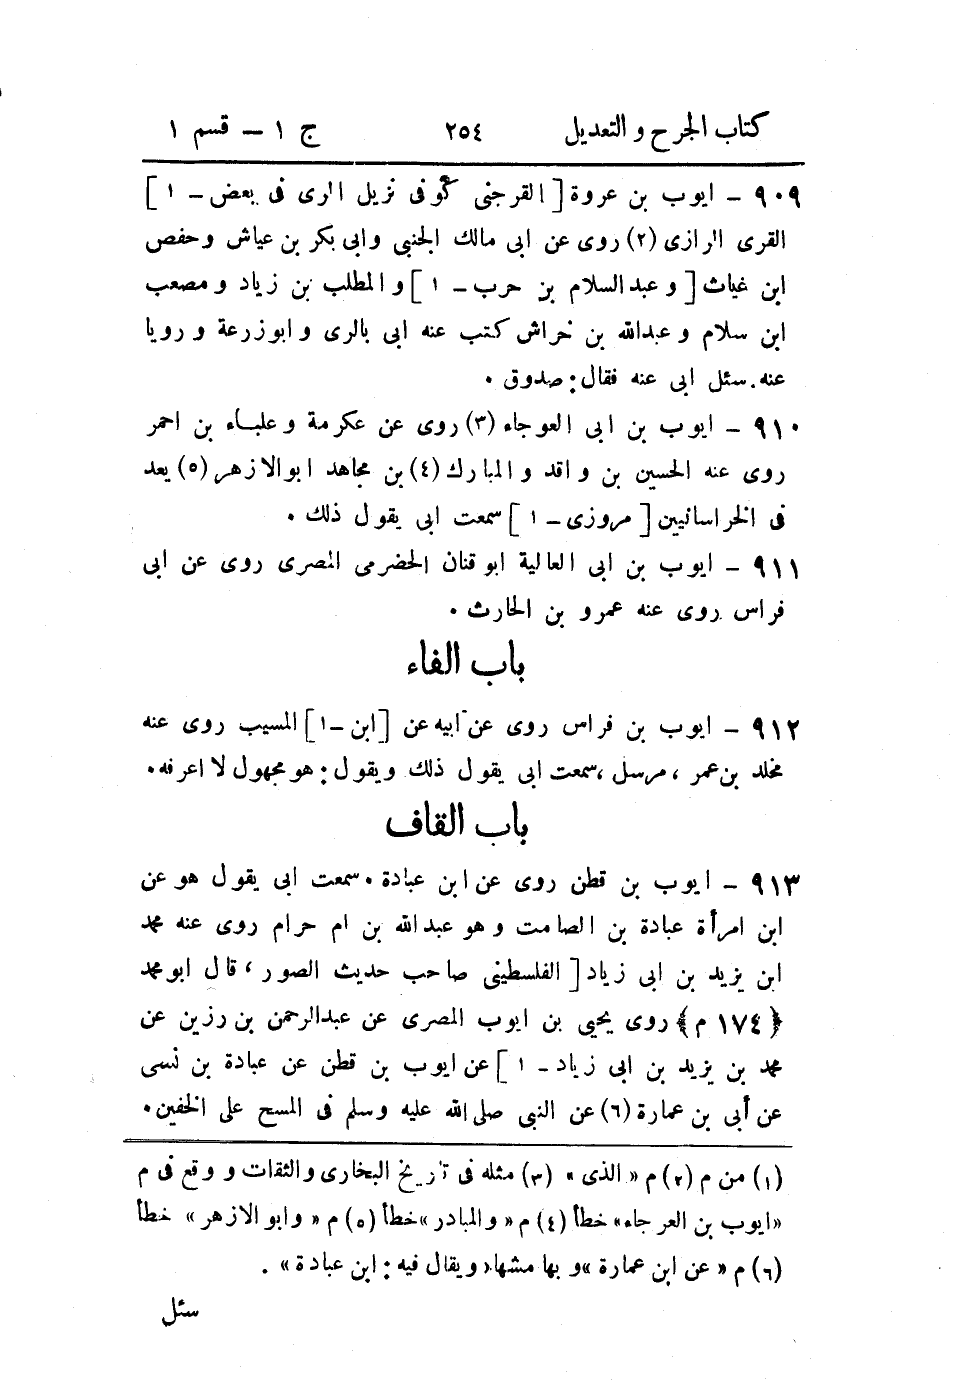 كتاب الجرح و التعديل ٢٥٤ ج ١ - قسم ١
٩٠٩ - ايوب بن عروة [ القرجنى كوفى نزيل الرى فى بعض - ١ ]
القرى الرازى (٢) روى عن ابى مالك الجنبى وابى بكر بن عياش وحفص
ابن غياث [ و عبد السلام بن حرب - ١ ] و المطلب بن زياد و مصعب
ابن سلام و عبدالله بن خراش كتب عنه ابى بالرى و ابوزرعة و رويا
عنه. سئل ابى عنه فقال: صدوق .
٩١٠ - ايوب بن ابى العوجاء (٣) روى عن عكرمة و علباء بن احمر
روى عنه الحسين بن واقد و المبارك (٤) بن مجاهد ابوالازهر (٥) يعد
فى الخراسانيين [ مروزى - ١ ] سمعت ابى يقول ذلك .
٩١١ - ايوب بن ابى العالية ابو قنان الحضرمى المصرى روى عن ابى
فراس روى عنه عمرو بن الحارث .
باب الفاء
٩١٢ - ايوب بن فراس روى عن ابيه عن [ ابن - ١ ] المسيب روى عنه
مخلد بن عمر ، مرسل ، سمعت ابى يقول ذلك ويقول : هو مجهول لا اعرفه .
باب القاف
٩١٣ - ايوب بن قطن روى عن ابن عبادة . سمعت ابى يقول هو عن
ابن امرأة عبادة بن الصامت و هو عبدالله بن ام حرام روى عنه محمد
ابن يزيد بن ابى زياد [ الفلسطينى صاحب حديث الصور ، قال ابو محمد
﴿١٧٤ م﴾ روى يحيى بن ايوب المصرى عن عبدالرحمن بن رزين عن
محمد بن يزيد بن ابى زياد - ١ ] عن ايوب بن قطن عن عبادة بن نسى
عن أبى بن عمارة (٦) عن النبى صلى الله عليه وسلم فى المسح على الخفين .
(١) من م (٢) م « الذى » (٣) مثله فى تاريخ البخارى والثقات و وقع فى م
« ايوب بن العرجاء » خطأ (٤) م « والمبادر » خطأ (٥) م « وابو الازهر » خطأ
(٦) م « عن ابن عمارة » و بهامشها « ويقال فيه : ابن عبادة » .
سئل